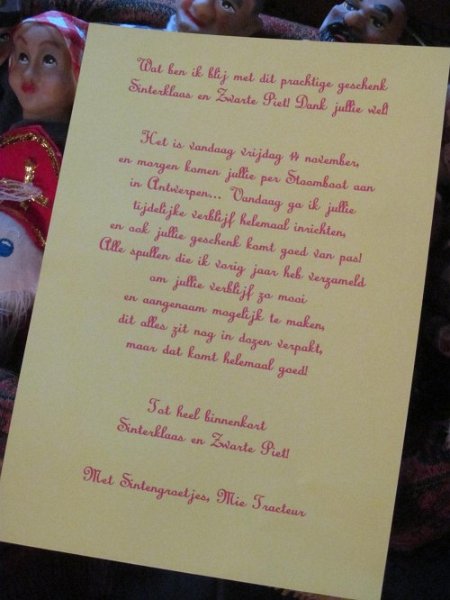 Wat ben ik blij met dit prachtige geschenk
Sinterklaas en Zwarte Piet! Dank jullie wel!
Het is vandaag vrijdag 14 november,
en morgen komen jullie per Stoomboot aan
in Antwerpen... Vandaag ga ik jullie
tijdelijke verblijf helemaal inrichten,
en ook jullie geschenk komt goed van pas!
Alle spullen die ik vorig jaar heb verzameld
om jullie verblijf zo mooi
en aangenaam mogelijk te maken,
dit alles zit nog in dozen verpakt,
maar dat komt helemaal goed!
Tot heel binnenkort
Sinterklaas en Zwarte Piet!
Met Sintengroetjes, Mie Tracteur